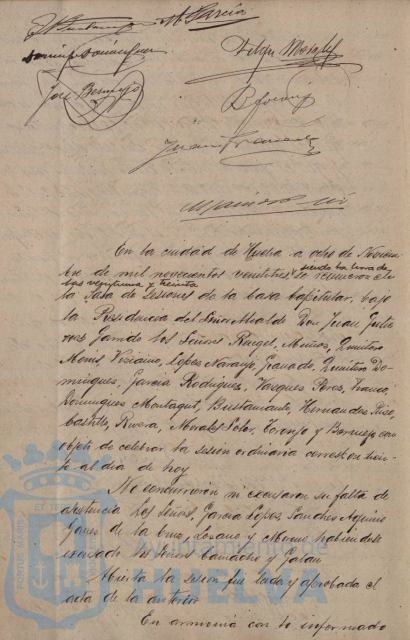 M García
José Bermejo
En la ciudad de Huelva a ocho de Noviem
bre de mil novecientos veintitres, siendo la hora de
las veintiuna y treinta se reunieron en
la Sala de Sesiones de la Casa Capitular, bajo
la Presidencia del Señor Alcalde Don Juan Gutie
rrez Garrido los Señores Rengel, Muñoz, Quintero
Monis, Vizcaino, Lopez Naranjo, Granado, Quintero Do-
minguez, Garcia Rodriguez, Vazquez Perez, Franco,
Dominguez Montagut, Bustamante, Hernandez Piso,
Castillo, Rivera, Morales Soler, Toronjo y Bermejo con
objeto de celebrar la sesion ordinaria correspondien-
te al dia de hoy
No concurrieron ni excusaron su falta de
asistencia los señores Garcia Lopez, Sanchez
de la Cruz, Lozano y Moreno habiendose
excusado los Señores Camacho y Galan
Abierta la sesion fue leida y aprobada el
acta de la anterior
En armonia con lo informado
Ayuntamiento de
HUELVA
PORTUS MARIS